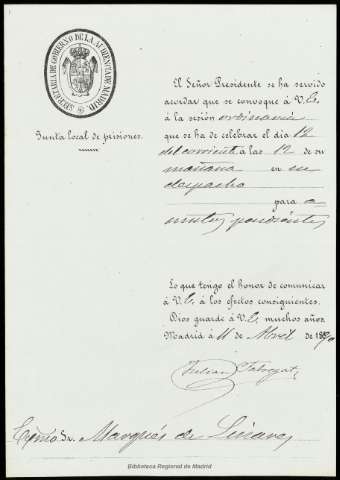 SECRETARIA DE GOBIERNO DE LA AUDIENCIA DE MADRID
Junta local de prisiones.
El Señor Presidente se ha servido
acordar que se convoque á V.E.
á la sesión ordinaria
que se ha de celebrar el día 12
del corriente á las 12 de su
mañana en su
despacho
para a
suntos pendientes
Lo que tengo el honor de comunicar
á V.E. á los efectos consiguientes.
Dios guarde á V.E. muchos años.
Madrid á 11 de Abril de 1890
Exmo Sr. Marqués de Linares
Biblioteca Regional de Madrid